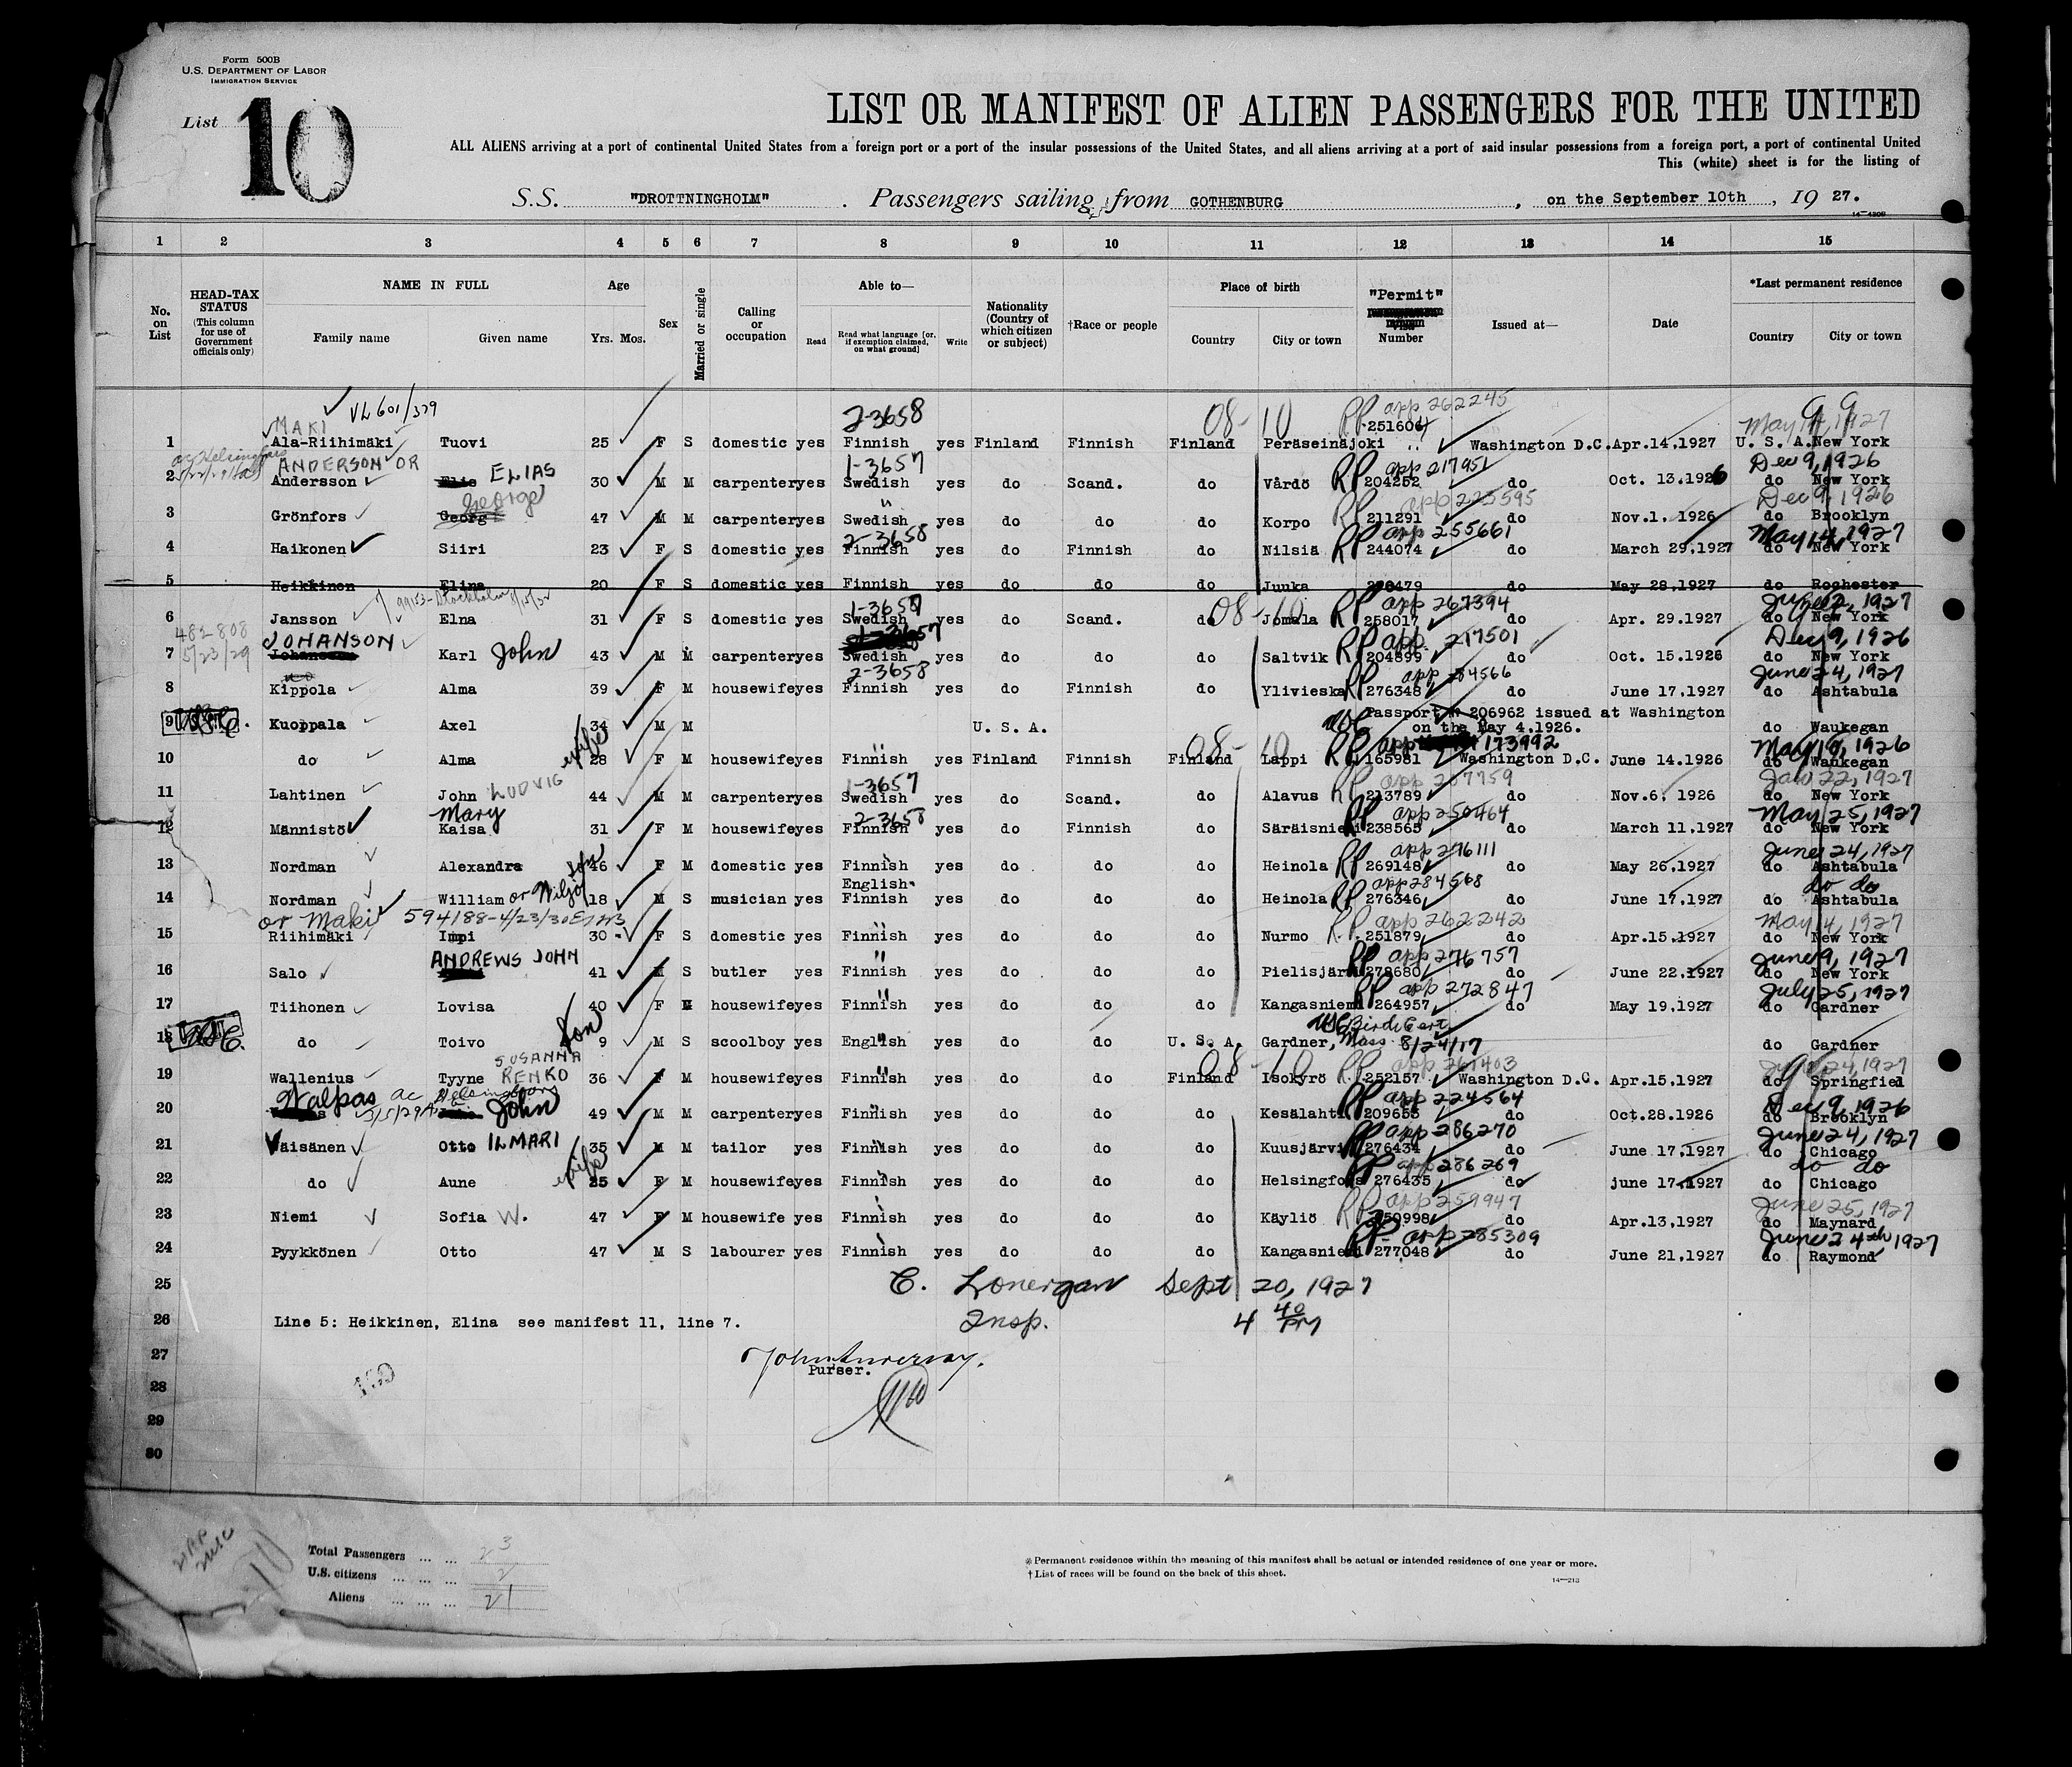 Form 500B
U.S. DEPARTMENT OF LABOR
IMMIGRATION SERVICE
List 10
LIST OR MANIFEST OF ALIEN PASSENGERS FOR THE UNITED
ALL ALIENS arriving at a port of continental United States from a foreign port or a port of the insular possessions of the United States, and all aliens arriving at a port of said insular possessions from a foreign port, a port of continental United
This (white) sheet is for the listing of
S.S. "DROTTNINGHOLM" . Passengers sailing from GOTHENBURG , on the September 10th , 19 27.
14—4208
1 2 3 4 5 6 7 8 9 10 11 12 13 14 15
No. on List
HEAD-TAX STATUS (This column for use of Government officials only)
NAME IN FULL Family name Given name
Age Yrs. Mos.
Sex
Married or single
Calling or occupation
Able to— Read Read what language [or, if exemption claimed, on what ground] Write
Nationality (Country of which citizen or subject)
†Race or people
Place of birth Country City or town
"Permit" Number
Issued at—
Date
*Last permanent residence Country City or town
VL601/379 2-3658 08-10 RP app 262245 May 14, 1927
MAKI
1 Ala-Riihimäki Tuovi 25 F S domestic yes Finnish yes Finland Finnish Finland Peräseinäjoki 251606 Washington D.C. Apr.14,1927 U. S. A. New York
ANDERSON OR ELIAS 1-3657 RP app 217951 Dec 9, 1926
2 Andersson Elis 30 M M carpenter yes Swedish yes do Scand. do Vårdö 204252 do Oct. 13.1926 do New York
George " RP app 225595 Dec 9, 1926
3 Grönfors Georg 47 M M carpenter yes Swedish yes do do do Korpo 211291 do Nov.1. 1926 do Brooklyn
2-3658 RP app 255661 May 14, 1927
4 Haikonen Siiri 23 F S domestic yes Finnish yes do Finnish do Nilsiä 244074 do March 29,1927 do New York
5 Heikkinen Elina 20 F S domestic yes Finnish yes do do do Juuka 270479 do May 28.1927 do Rochester
99153-Stockholm 1-3657 08-10 RP app 267394 June 2, 1927
6 Jansson Elna 31 F S domestic yes Swedish yes do Scand. do Jomala 258017 do Apr. 29.1927 do New York
482-808 5/23/29 JOHANSON 1-3657 RP app 217501 Dec 9, 1926
7 Karl John 43 M M carpenter yes Swedish yes do do do Saltvik 204899 do Oct. 15.1926 do New York
2-3658 RP app 284566 June 24, 1927
8 Kippola Alma 39 F M housewife yes Finnish yes do Finnish do Ylivieska 276348 do June 17.1927 do Ashtabula
Passport № 206962 issued at Washington
9 USC. Kuoppala Axel 34 M M U. S. A. on the May 4.1926. do Waukegan
wife 08-10 RP app 173992 May 19, 1926
10 do Alma 28 F M housewife yes Finnish yes Finland Finnish Finland Lappi 165981 Washington D.C. June 14.1926 do Waukegan
LUDVIG 1-3657 RP app 207759 Jan 22, 1927
11 Lahtinen John 44 M M carpenter yes Swedish yes do Scand. do Alavus 213789 do Nov.6. 1926 do New York
Mary 2-3658 RP app 250464 May 25, 1927
12 Männistö Kaisa 31 F M housewife yes Finnish yes do Finnish do Säräisniemi 238565 do March 11.1927 do New York
RP app 276111 June 24, 1927
13 Nordman Alexandra 46 F M domestic yes Finnish yes do do do Heinola 269148 do May 26.1927 do Ashtabula
son English. RP app 284568 do do
14 Nordman William or Wiljo 18 M S musician yes Finnish yes do do do Heinola 276346 do June 17.1927 do Ashtabula
or Maki 594188-4/23/30 RP app 262242 May 14, 1927
15 Riihimäki Impi 30 F S domestic yes Finnish yes do do do Nurmo 251879 do Apr.15.1927 do New York
ANDREWS JOHN " RP app 276757 June 9, 1927
16 Salo 41 M S butler yes Finnish yes do do do Pielisjärvi 278680 do June 22.1927 do New York
RP app 272847 July 25, 1927
17 Tiihonen Lovisa 40 F M housewife yes Finnish yes do do do Kangasniemi 264957 do May 19.1927 do Gardner
Son USC Birth Cert
18 USC. do Toivo 9 M S scoolboy yes English yes do do U. S. A. Gardner, Mass 8/24/17 do Gardner
SUSANNA RENKO 08-10 RP app 261403 24, 1927
19 Wallenius Tyyne 36 F M housewife yes Finnish yes do do Finland Isokyrö 252157 Washington D.C. Apr.15,1927 do Springfiel
Walpas ac Helsingfors RP app 224564 Dec 9, 1926
20 John 49 M M carpenter yes Finnish yes do do do Kesälahti 209655 do Oct.28.1926 do Brooklyn
RP app 286270 June 24, 1927
21 Väisänen Otto ILMARI 35 M M tailor yes Finnish yes do do do Kuusjärvi 276434 do June 17.1927 do Chicago
wife RP app 286269 do do
22 do Aune 25 F M housewife yes Finnish yes do do do Helsingfors 276435 do june 17.1927 do Chicago
RP app 259947 June 25, 1927
23 Niemi Sofia W. 47 F M housewife yes Finnish yes do do do Käyliö 250998 do Apr.13,1927 do Maynard
RP app 285309 June 24th 1927
24 Pyykkönen Otto 47 M S labourer yes Finnish yes do do do Kangasniemi 277048 do June 21,1927 do Raymond
25 C. Lonergan Sept 20, 1927
26 Line 5: Heikkinen, Elina see manifest 11, line 7. Insp. 4 40 PM
27
Purser.
28
29
30
Total Passengers ... ... 23
U.S. citizens ... ... ... 2
Aliens ... ... ... 21
*Permanent residence within the meaning of this manifest shall be actual or intended residence of one year or more.
†List of races will be found on the back of this sheet.
14—213